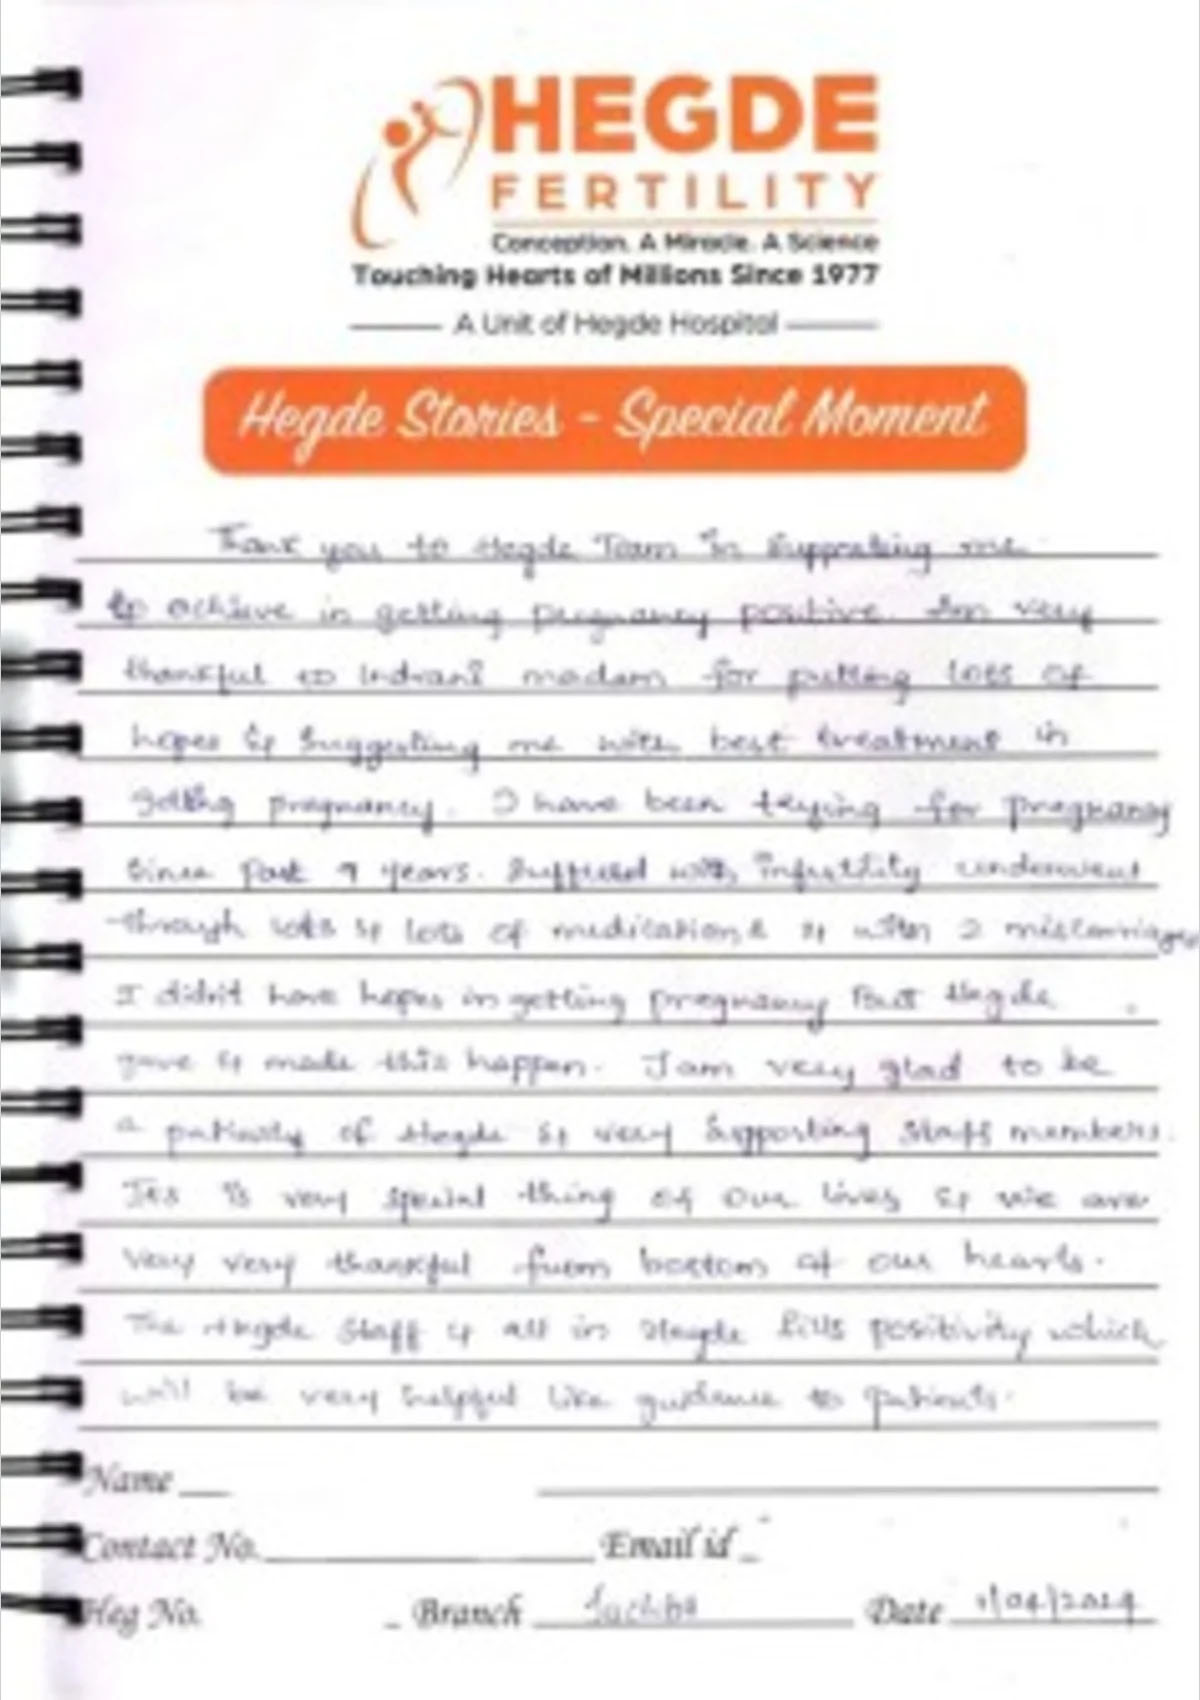 HEGDE
FERTILITY
Conception. A Miracle. A Science
Touching Hearts of Millions Since 1977
A Unit of Hegde Hospital
Hegde Stories - Special Moment
Thank you to Hegde Team in supporting me
to achieve in getting pregnancy positive. Am very
thankful to Indrani madam for putting lots of
hopes & suggesting me with best treatment in
getting pregnancy. I have been trying for pregnancy
since past 9 years. Suffured with infertility underwent
through lots & lots of medications & after 2 miscarriages
I didn't have hopes in getting pregnancy But Hegde
gave & made this happen. I am very glad to be
a of Hegde & very supporting staff members.
Its is very special thing of our lives & we are
very very thankful from bottom of our hearts.
The Hegde staff & all in Hegde fills positivity which
will be very helpful like guidance to patients.
Name
Contact No. Email id
Heg No. Branch Date /04/2024